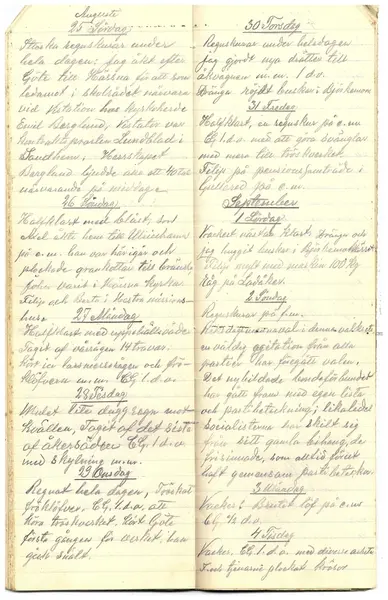 Augusti
25 Lördag
Starka regnskurar under
hela dagen: Jag åkt efter
Göte till Härna för att som
ledamot i skolrådet närvara
vid Visitation hos Kyrkoherde
Emil Berglund, Visitator var
Kontraktsprosten Lundblad i
Sandhem. Herrskapet
Berglund bjudde oss att 40 tal
närvarande på middag.
26 Söndag
Halfklart med blåst, son
Mel åkte hem till Ulricehamn
på e.m. han var här igår och
plockade grankottar till
folen varit i Härna Kyrka
Filip och Berta i Hästra
hus.
27 Måndag
Halfklart med
Taget af vårågen 14 travar.
Kör in
klöfvern m.m. E.G. 1. d.o.
28 Tisdag
Mulet lite duggregn mot
kvällen, Taget af det sista
af åkersäden E.G. 1. d.o.
med Skylning m.m.
29 Onsdag
Regnat hela dagen, Tröskat
fröklöfver. E.G. 1. d.o. att
köra tröskverket. Kört Göte
första gången för verket, han
gick snält.
30 Torsdag
Regnskurar under heladagen
jag gjordt nya drätter till
åkvagnen m.m. 1 d.o.
Drängen röjdt buskar i Sjökärren
31 Fredag
Halfklart, en regnskur på e.m.
E.G. 1. d.o. med att göra
med mera till tröskverket.
Filip på pensionsnämnde i
Gullered på e.m.
September
1 Lördag
Vackert nästan klart. Dränge och
jag huggit buskar i
Filip myllt med maskin 100 Kg
Råg på Ladåker.
2 Söndag
Regnskurar på f.m.
Riksdagsmannaval i denna valkrets
en väldig agitation från alla
partier har föregått valen.
Det nybildade bondeförbundet
har gått fram med egen lista
och partibeteckning, likaledes
Socialisterna har skilt sig
från sitt gamla bihang, de
frisinnade, som alltid förut
haft gemensam partibeteckn.
3 Måndag
Vackert Brutit löf på e.m.
E.G. ½ d.o.
4 Tisdag
Vacker. E.G. 1. d.o. med diverse arbete
plockat krösor